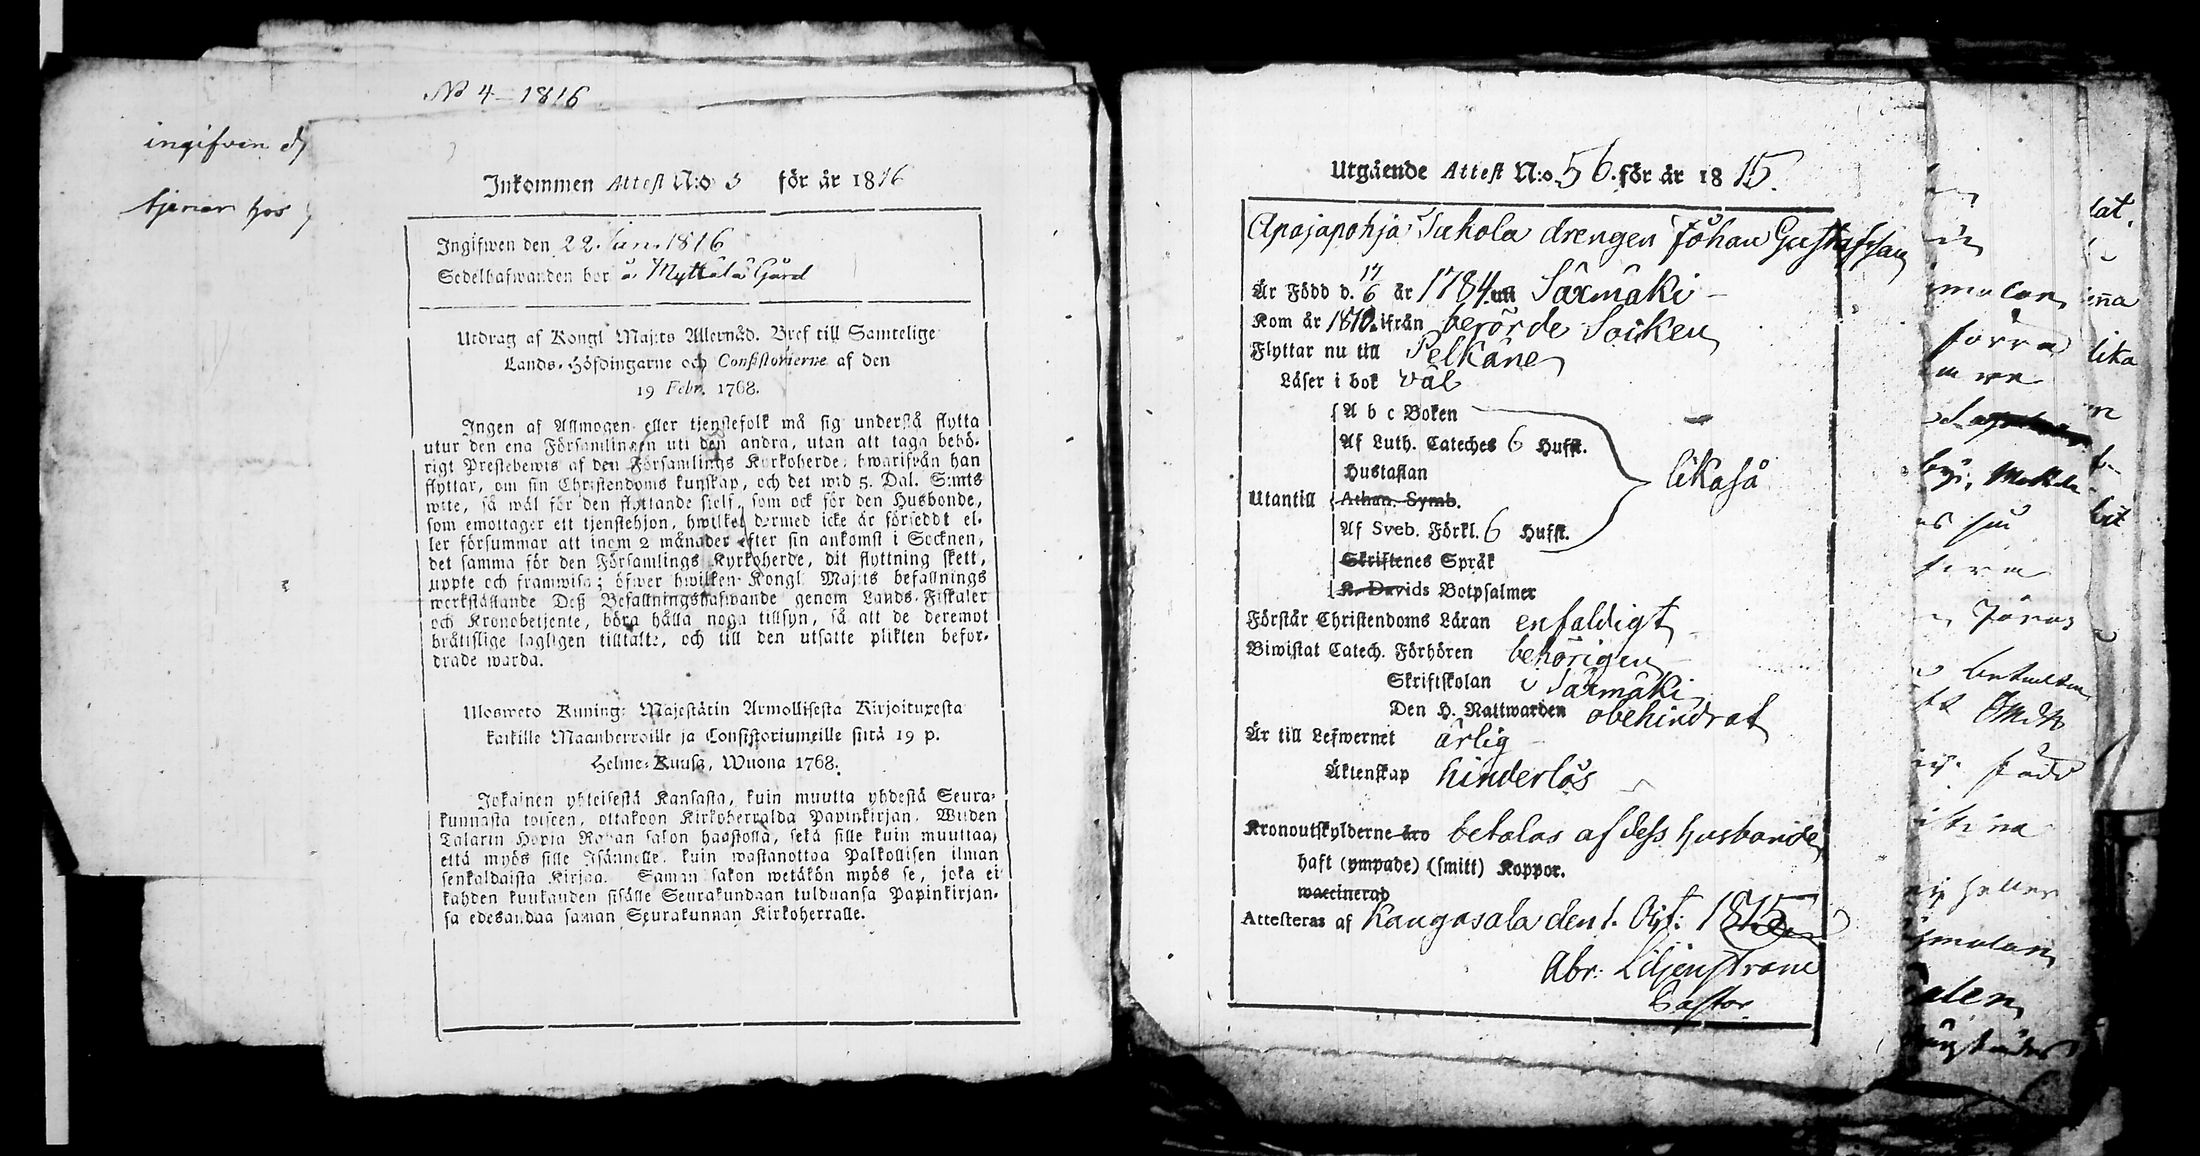 No 4 – 1816
ingifven d
tjenar hos
Inkommen Attest N:o 5 för år 1816
Ingifwen den 22 Jan. 1816
Sedelhafwanden bor å Myttälä Gård
Utdrag af Kongl Maj:ts Allernåd. Bref till Samtelige
Lands-Höfdingarne och Consistorierne af den
19 Febr. 1768.
Ingen af Allmogen eller tjenstefolk må sig understå flytta
utur den ena Församlingen uti den andra, utan att taga behö-
rigt Prestebewis af den Församlings Kyrkoherde, hwarifrån han
flyttar, om sin Christendoms kunskap, och det wid 5. Dal. S:mts
wite, så wäl för den flyttande sielf, som ock för den Husbonde,
som emottager ett tjenstehjon, hwilket dermed icke är försedt el-
ler försummar att inom 2 månader efter sin ankomst i Socknen,
det samma för den Församlings Kyrkoherde, dit flyttning skett,
uppte och framwisa; öfwer hwilken Kongl. Maj:ts befallnings
werkställande Deß Befallningshafwande genom Lands-Fiskaler
och Kronobetjente, böra hålla noga tillsyn, så att de deremot
bråtislige lagligen tilltalte, och till den utsatte plikten befor-
drade warda.
Ulosweto Kuning: Majestätin Armollisesta Kirjoituxesta
kaikille Maanherroille ja Consistoriumeille siitä 19 p.
Helme-Kuusa, Wuona 1768.
Jokainen yhteisestä Kansasta, kuin muutta yhdestä Seura-
kunnasta toiseen, ottakoon Kirkoherralda Papinkirjan. Wiiden
Talarin Hopia Rahan sakon haastolla, sekä sille kuin muuttaa,
että myös sille Isännelle kuin wastanottaa Palkollisen ilman
senkaldaista Kirjaa. Saman sakon wetäkön myös se, joka ei
kahden kuukauden sisälle Seurakundaan tulduansa Papinkirjan-
sa edesandaa saman Seurakunnan Kirkoherralle.
Utgående Attest N:o 56. för år 1815.
Apajapohja Sukola drengen Johan Gustafsson
Är Född d. 17/6 år 1784. uti Säxmäki –
Kom år 1810. ifrån berörde Socken
Flyttar nu till Pelkäne
Läser i bok väl
A b c Boken
Af Luth. Cateches 6 Hufst.
Hustaflan
Utantill Athan. Symb. likaså
Af Sveb. Förkl. 6 Hufst.
Skriftenes Språk
K. Davids Botpsalmer
Förstår Christendoms Läran enfaldigt
Biwistat Catech. Förhören behörigen
Skriftskolan i Säxmäki
Den H. Nattwarden obehindrat
Är till Lefwernet ärlig –
Äktenskap hinderlös
Kronoutskylderne äro betalas af dess husbonde
haft (ympade) (smitt) Koppor.
waccinerad
Attesteras af Kangasala den 1. Oct: 1815
Abr: Liljenstrand
Pastor.